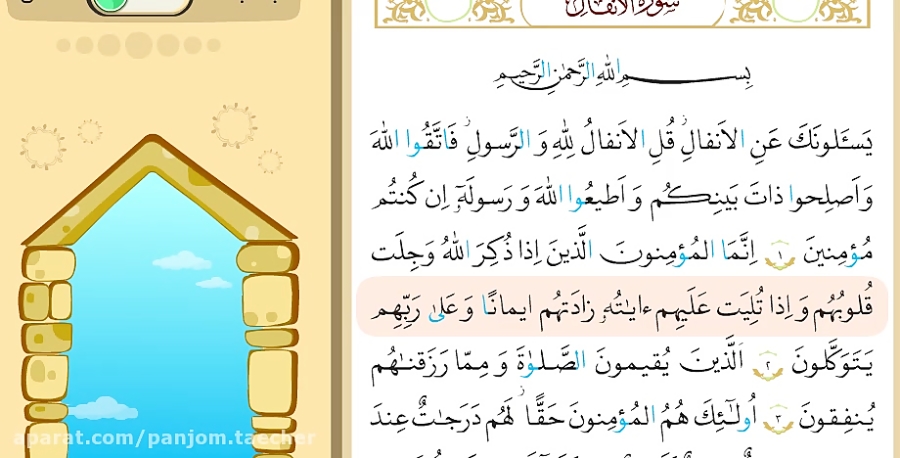 سورة الانفال
بِسمِ اللهِ الرَّحمٰنِ الرَّحيمِ
يَسـَٔلونَكَ عَنِ الاَنفالِۖ قُلِ الاَنفالُ لِلّٰهِ وَ الرَّسولِۖ فَاتَّقُوا اللهَ
وَ اَصلِحوا ذاتَ بَينِكُم وَ اَطيعُوا اللهَ وَ رَسولَهٗٓ اِن كُنتُم
مُؤمِنينَ ﴿١﴾ اِنَّمَا المُؤمِنونَ الَّذينَ اِذا ذُكِرَ اللهُ وَجِلَت
قُلوبُهُم وَ اِذا تُلِيَت عَلَيهِم ءايٰتُهٗ زادَتهُم ايمانًا وَ عَلىٰ رَبِّهِم
يَتَوَكَّلونَ ﴿٢﴾ اَلَّذينَ يُقيمونَ الصَّلوٰةَ وَ مِمّا رَزَقنٰهُم
يُنفِقونَ ﴿٣﴾ اُولٰٓئِكَ هُمُ المُؤمِنونَ حَقًّاۚ لَهُم دَرَجٰتٌ عِندَ
aparat.com/panjom.taecher